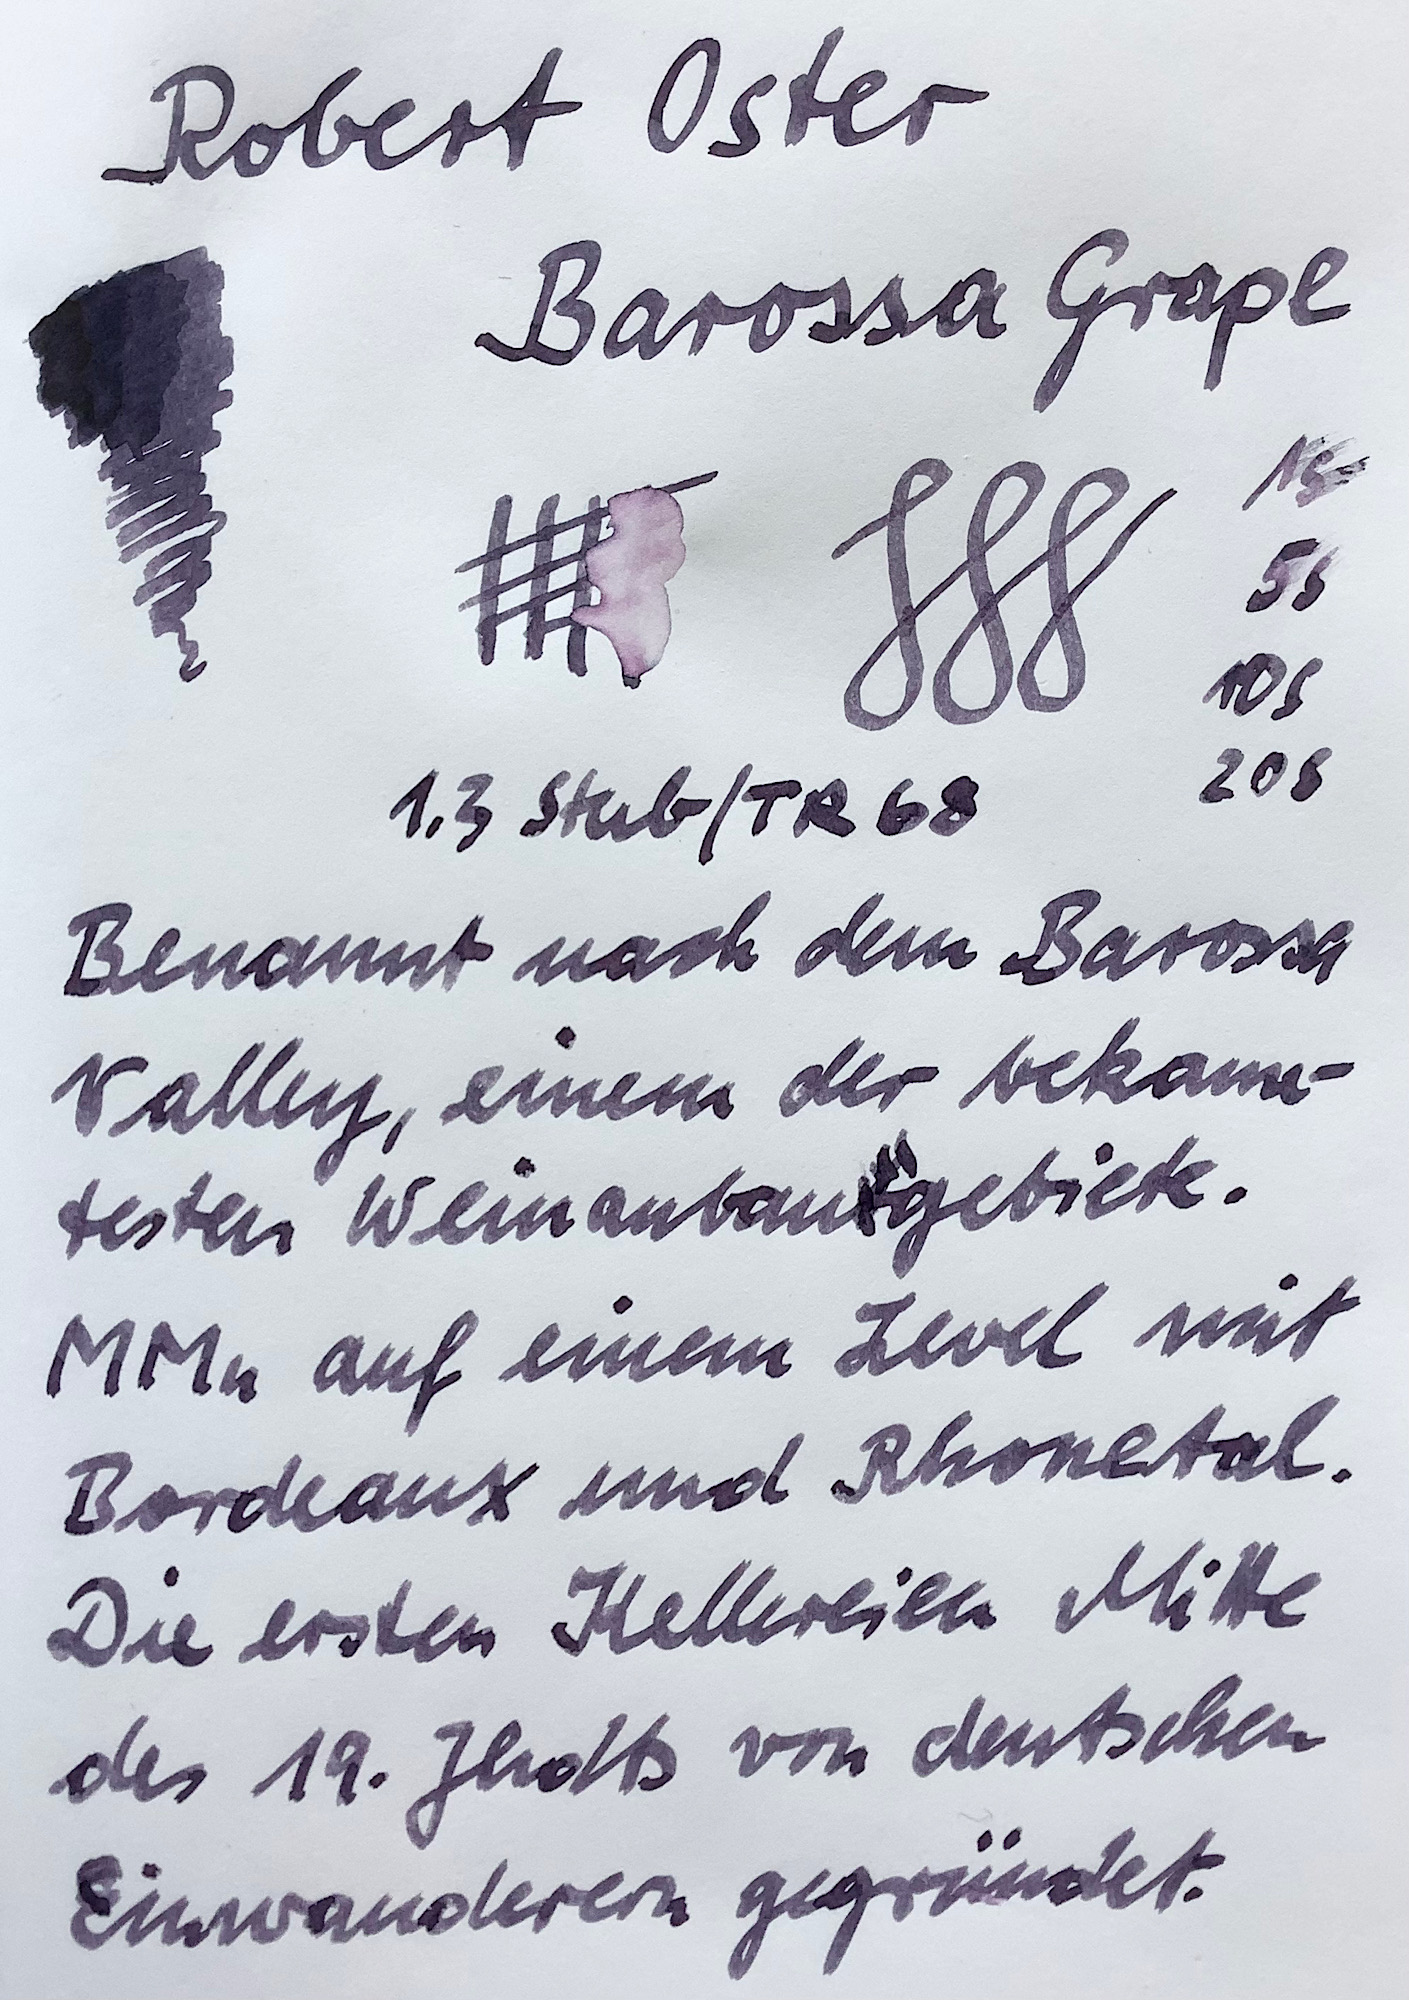 Robert Oster
Barossa Grape
1s
5s
10s
20s
1.3 Stub/TR 68
Benannt nach dem Barossa
Valley, einem der bekann-
testen Weinanbaugebiete.
MMn auf einem Level mit
Bordeaux und Rhonetal.
Die ersten Kellereien Mitte
des 19. Jhdts von deutschen
Einwanderern gegründet.